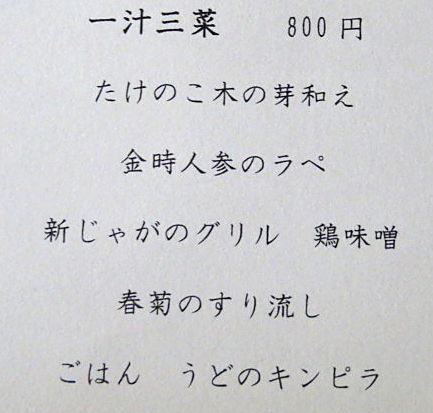 一汁三菜　800 円
たけのこ木の芽和え
金時人参のラペ
新じゃがのグリル　鶏味噌
春菊のすり流し
ごはん　うどのキンピラ